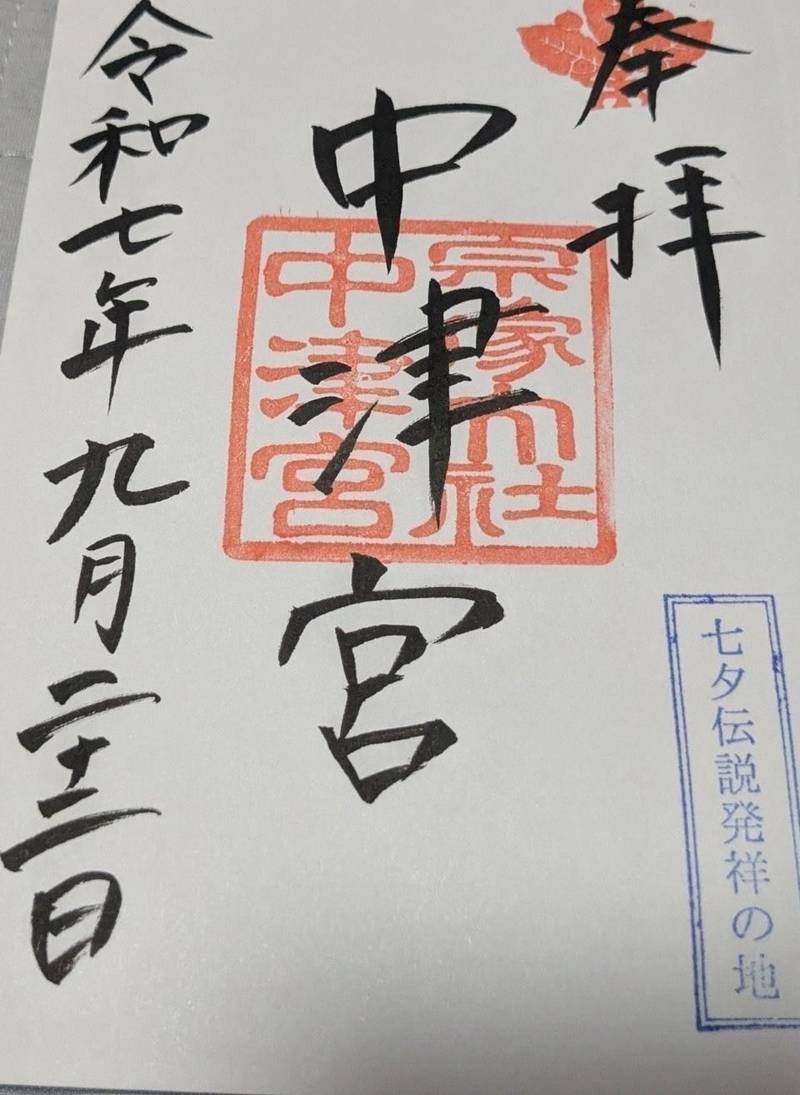 奉拝
中津宮
宗像大社
中津宮
令和七年九月二十二日
七夕伝説発祥の地